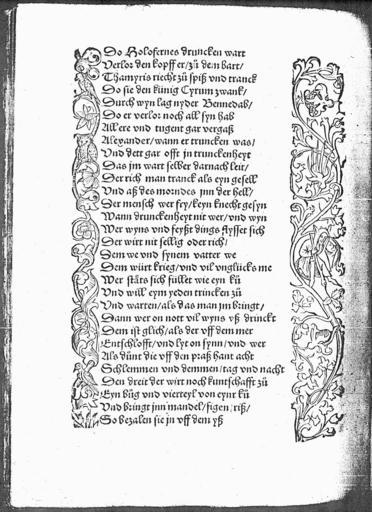 Do Holofernes druncken wart
Verlor den kopff er/zů dem bart/
Thamyris riecht zů spiß vnd tranck
Do sie den künig Cyrum zwanck/
Durch wyn lag nyder Bennedab/
Do er verlor noch all syn hab
All ere vnd tugent gar vergaß
Alexander/wann er truncken was/
Vnd dett gar offt in trunckenheyt
Das jm wart selber darnach leit/
Der rich man tranck als eyn gesell
Vnd aß des morndes jnn der hell/
Der mensch wer fry/keyn knecht gesyn
Wann drunckenheyt nit wer/vnd wyn
Wer wyns vnd feyßt dings flysset sich
Der wirt nit sellig oder rich/
Dem we vnd synem vatter we
Dem würt krieg/vnd vil vnglücks me
Wer stäts sich füllet wie eyn kü
Vnd will eym yeden trincken zů
Vnd warten/als das man jm bringt/
Dann wer on nott vil wyns vß drinckt
Dem ist glich/als der vff dem mer
Entschlofft/vnd lyt on synn/vnd wer
Als dünt die vff den praß hant acht
Schlemmen vnd demmen/tag vnd nacht
Den dreit der wirt noch kuntschafft zů
Eyn bůg vnd viertzyl von eynr ků
Vnd bringt jnn mandel/figen/riß/
So bezalen sie jn vff dem yß